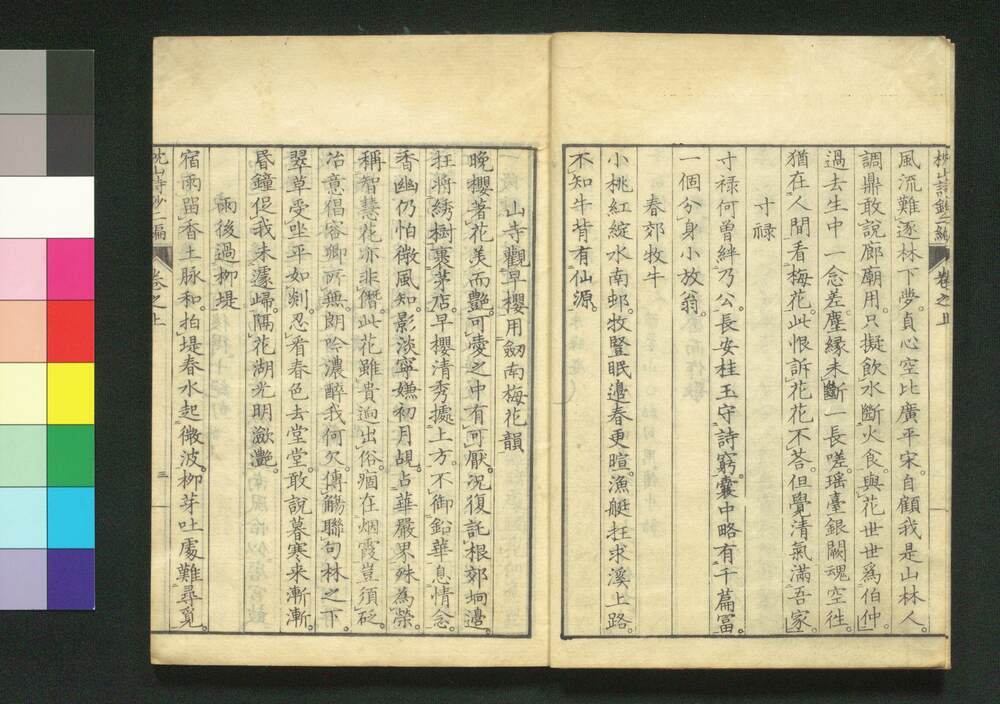 風流難逐林下夢。貞心空比廣平宋。自顧我是山林人。
調鼎敢說廊廟用。只擬飲水斷火食。與花世世爲伯仲。
過去生中一念差。塵縁未斷一長嗟。瑶臺銀闕魂空徃。
猶在人間看梅花。此恨訴花花不荅。但覺清氣滿吾家。
寸禄
寸禄何曽絆乃公。長安桂玉守詩窮。囊中略有千篇冨。
一個分身小放翁。
春郊牧牛
小桃紅綻水南邨。牧豎眠邉春更暄。漁艇抂求溪上路。
不知牛背有仙源。
山寺觀早櫻用劒南梅花韻
晚櫻著花美而艷。可愛之中有可厭。況復託根郊坰邉。
抂將綉樹裹茅店。早櫻清秀擅上方。不御鉛華息情念。
香幽仍怕微風知。影淡寧嫌初月覘。占華嚴界殊為榮。
稱智慧花亦非僭。此花雖貴逈出俗。痼在烟霞豈須砭。
冶意猖容卿所無。朗吟濃醉我何欠。傳觴聯句林之下。
翠草受坐平如剡。忍看春色去堂堂。敢說暮寒来漸漸。
昏鐘促我未遽歸。隔花湖光明瀲灔。
雨後過柳堤
宿雨畱香土脉和。拍堤春水起微波。柳芽吐處難尋覓。
卷之上
三